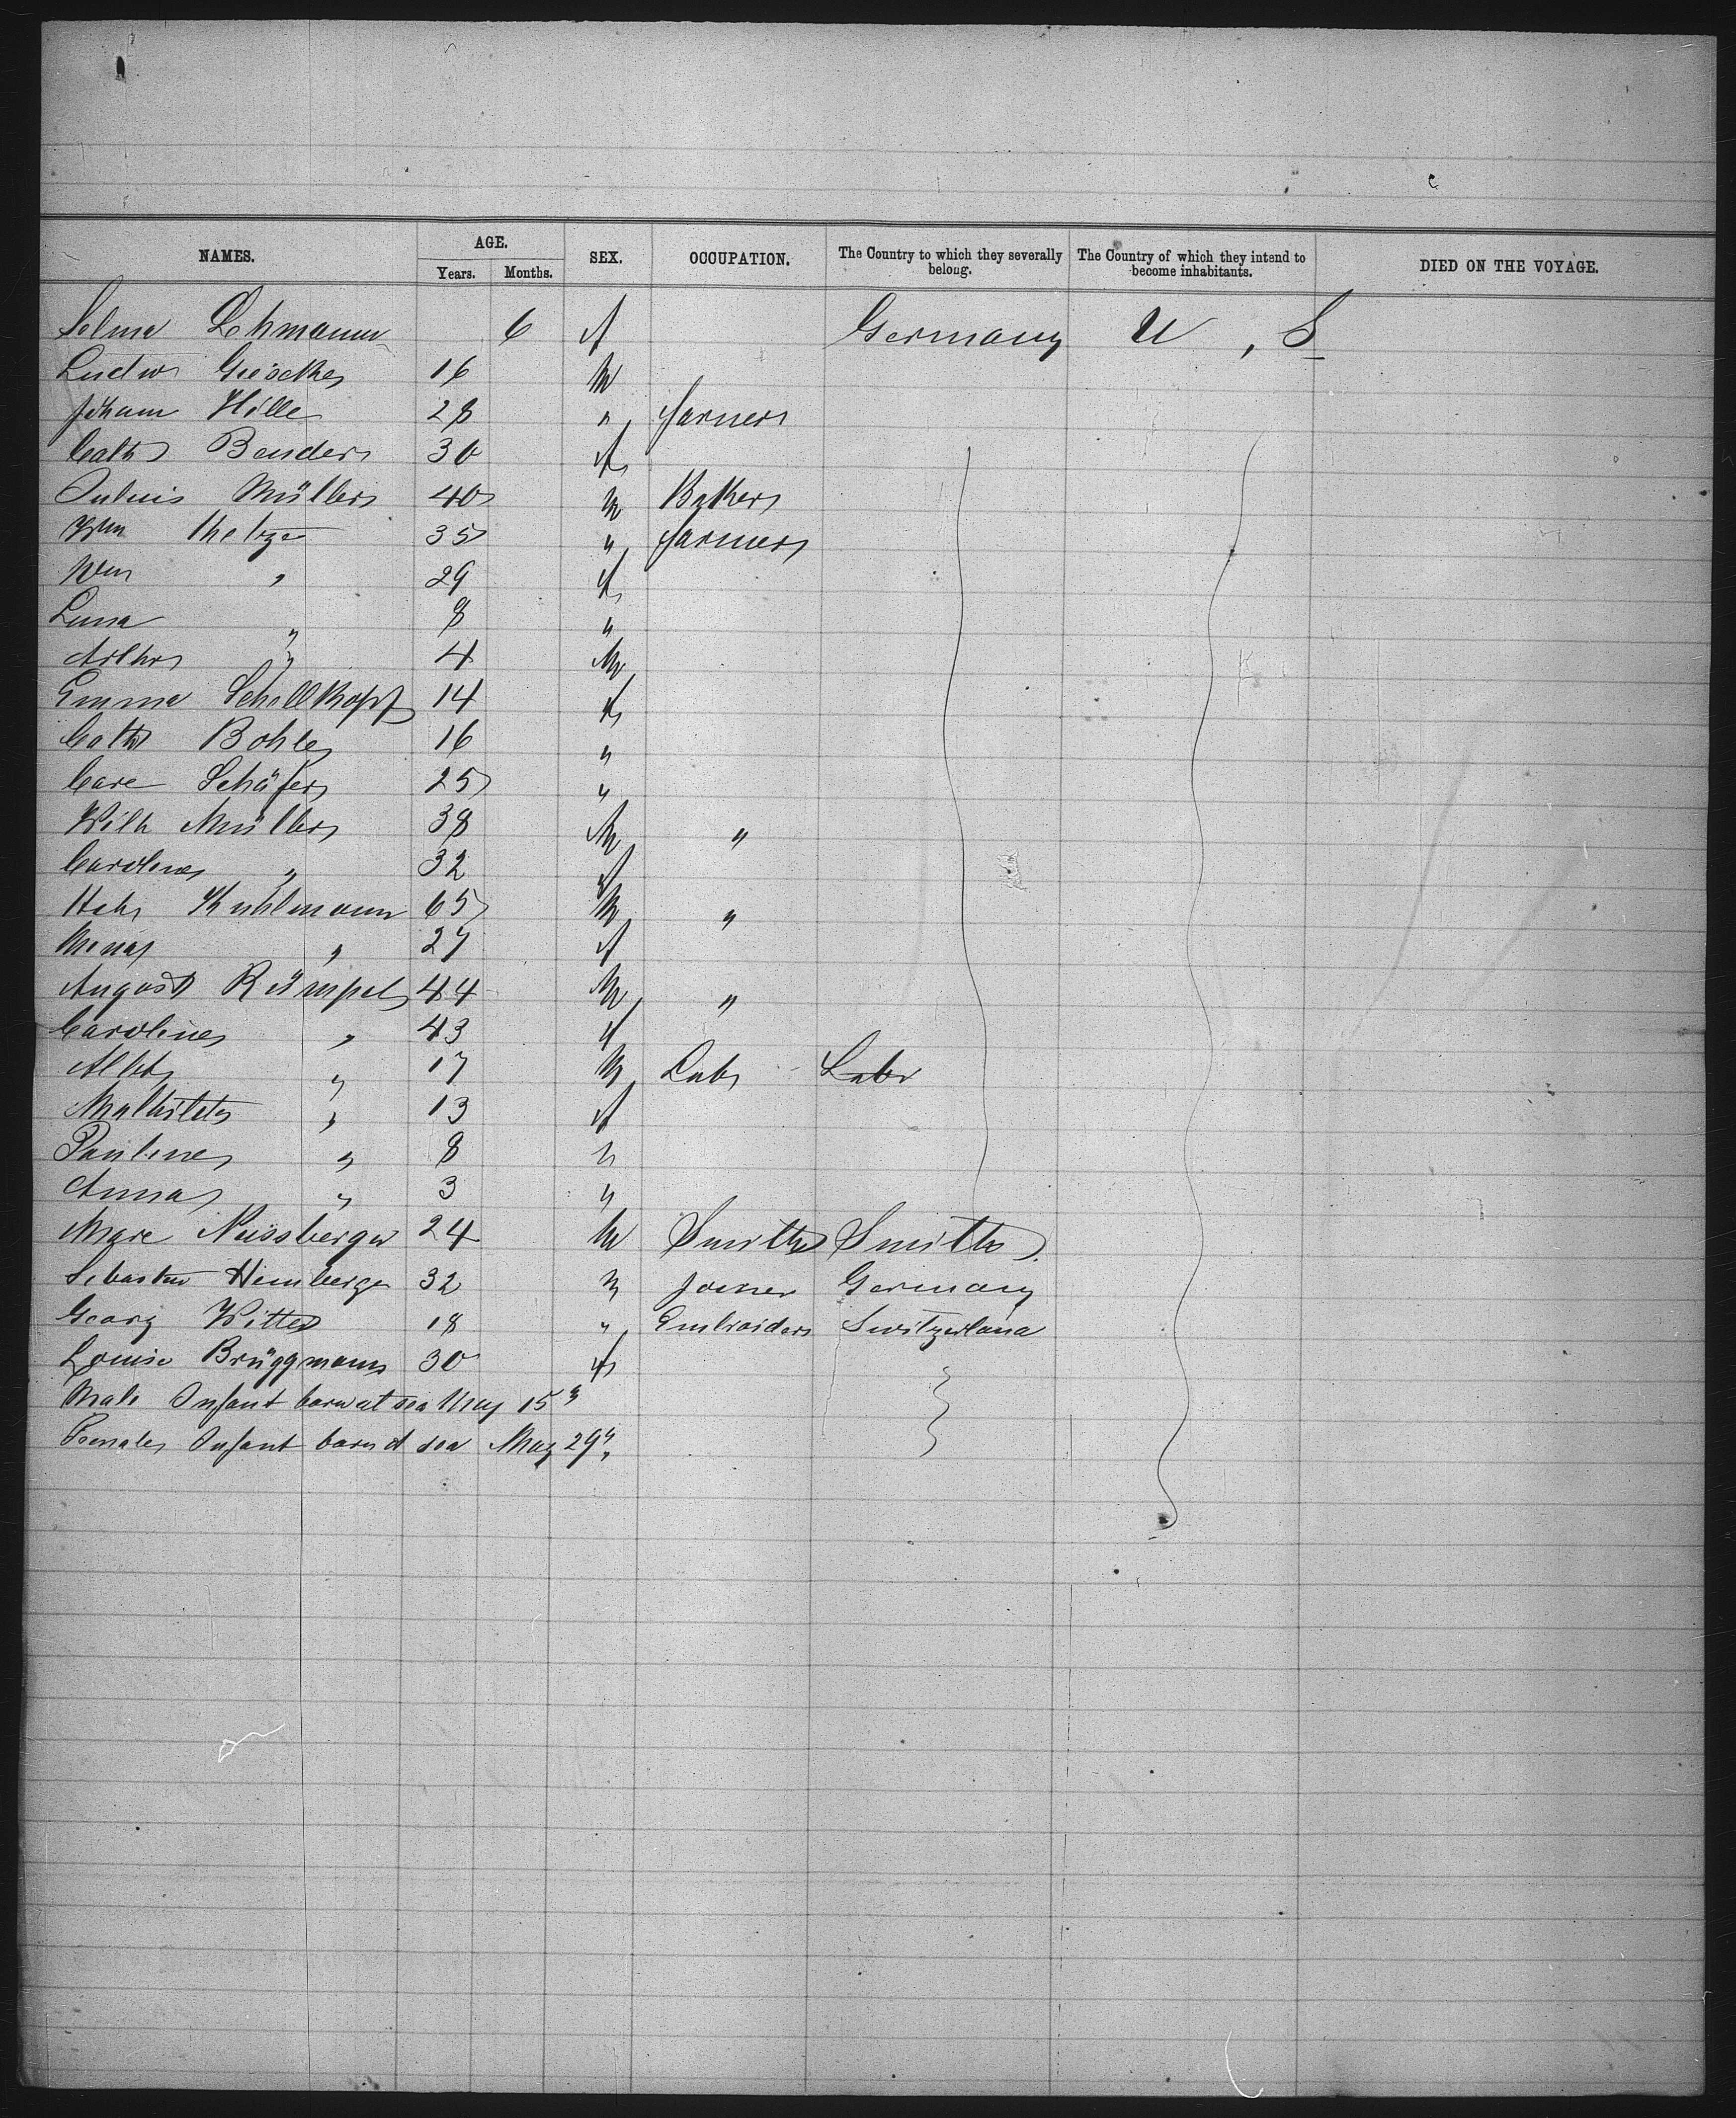 NAMES. AGE. SEX. OCCUPATION. The Country to which they severally belong. The Country of which they intend to become inhabitants. DIED ON THE VOYAGE.
Years. Months.
Selma Lehmann 6 f Germany U, S
Ludw 16 m
Johann Hille 28 " farmer
Cath Bender 30 f
Julius Müller 40 m Baker
Wm 35 " farmer
Wm " 29 f
" 8 "
Arthur " 4 m
Emma Schollkopf 14 f
Cath Bohle 16 "
Schäfer 25 "
Wilh Müller 38 m "
Caroline " 32 f
Kuhlmann 65 m "
" 27 f
August Rümpel 44 m "
Caroline " 43 f
" 17 m Labr Labr
" 13 f
Pauline " 8 "
Anna " 3 "
Neissberger 24 m Smith Smith
Hemberger 32 " Joiner Germany
Georg Witte 18 " Embroider Switzerland
Louise Brüggmann 30 f
Male Infant born at sea May 15"
Female Infant born at sea May 29"